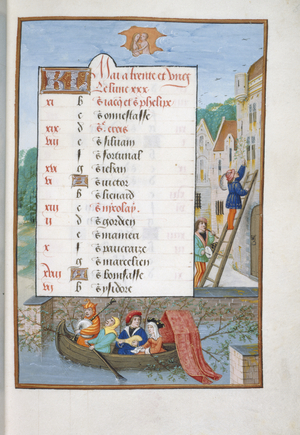 Mai a trente et ung
Le lune xxx
xi b s iacq et s phelix
c s onnestasse
xix d s crois
viii e
f s fortunat
xvi g s iehan
v s victor
b s lienard
xiii c s nycolay
ii d s gordien
e s mamert
x f s pancrasse
g s marcelien
xviii s bonifasse
vii b s ysidore